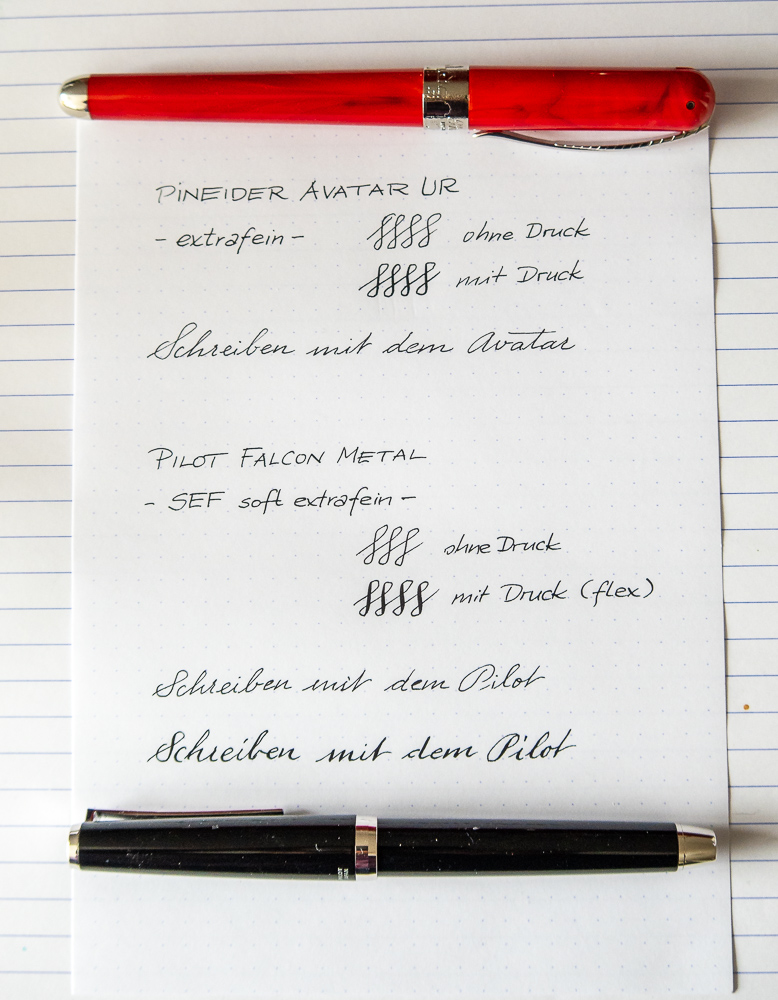 PINEIDER AVATAR UR
- extrafein - ohne Druck
mit Druck
Schreiben mit dem Avatar
PILOT FALCON METAL
- SEF soft extrafein -
ohne Druck
mit Druck (flex)
Schreiben mit dem Pilot
Schreiben mit dem Pilot